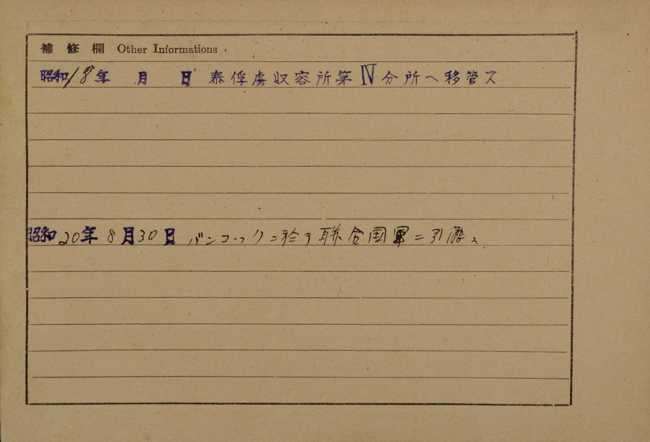 補修欄 Other Informations.
昭和18年 月 日 泰俘虜収容所第Ⅳ分所ヘ移管ス
昭和20年8月30日 バンコックニ於テ聯合国軍ニ引渡ス